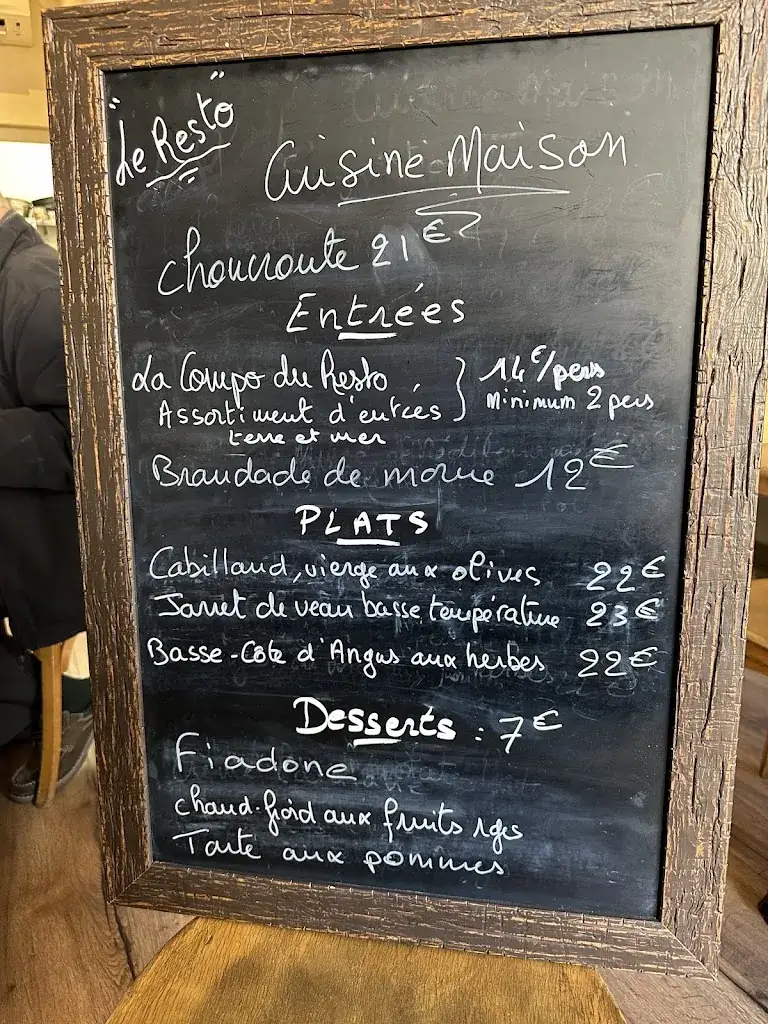 "Le Resto"
Cuisine Maison
Choucroute 21€
Entrées
La Compo du Resto, 14€/pers
Assortiment d'entrées Minimum 2 pers
terre et mer
Brandade de morue 12€
PLATS
Cabillaud, vierge aux olives 22€
Jarret de veau basse température 23€
Basse-Côte d'Angus aux herbes 22€
Desserts : 7€
Fiadone
Chaud-froid aux fruits rges
Tarte aux pommes